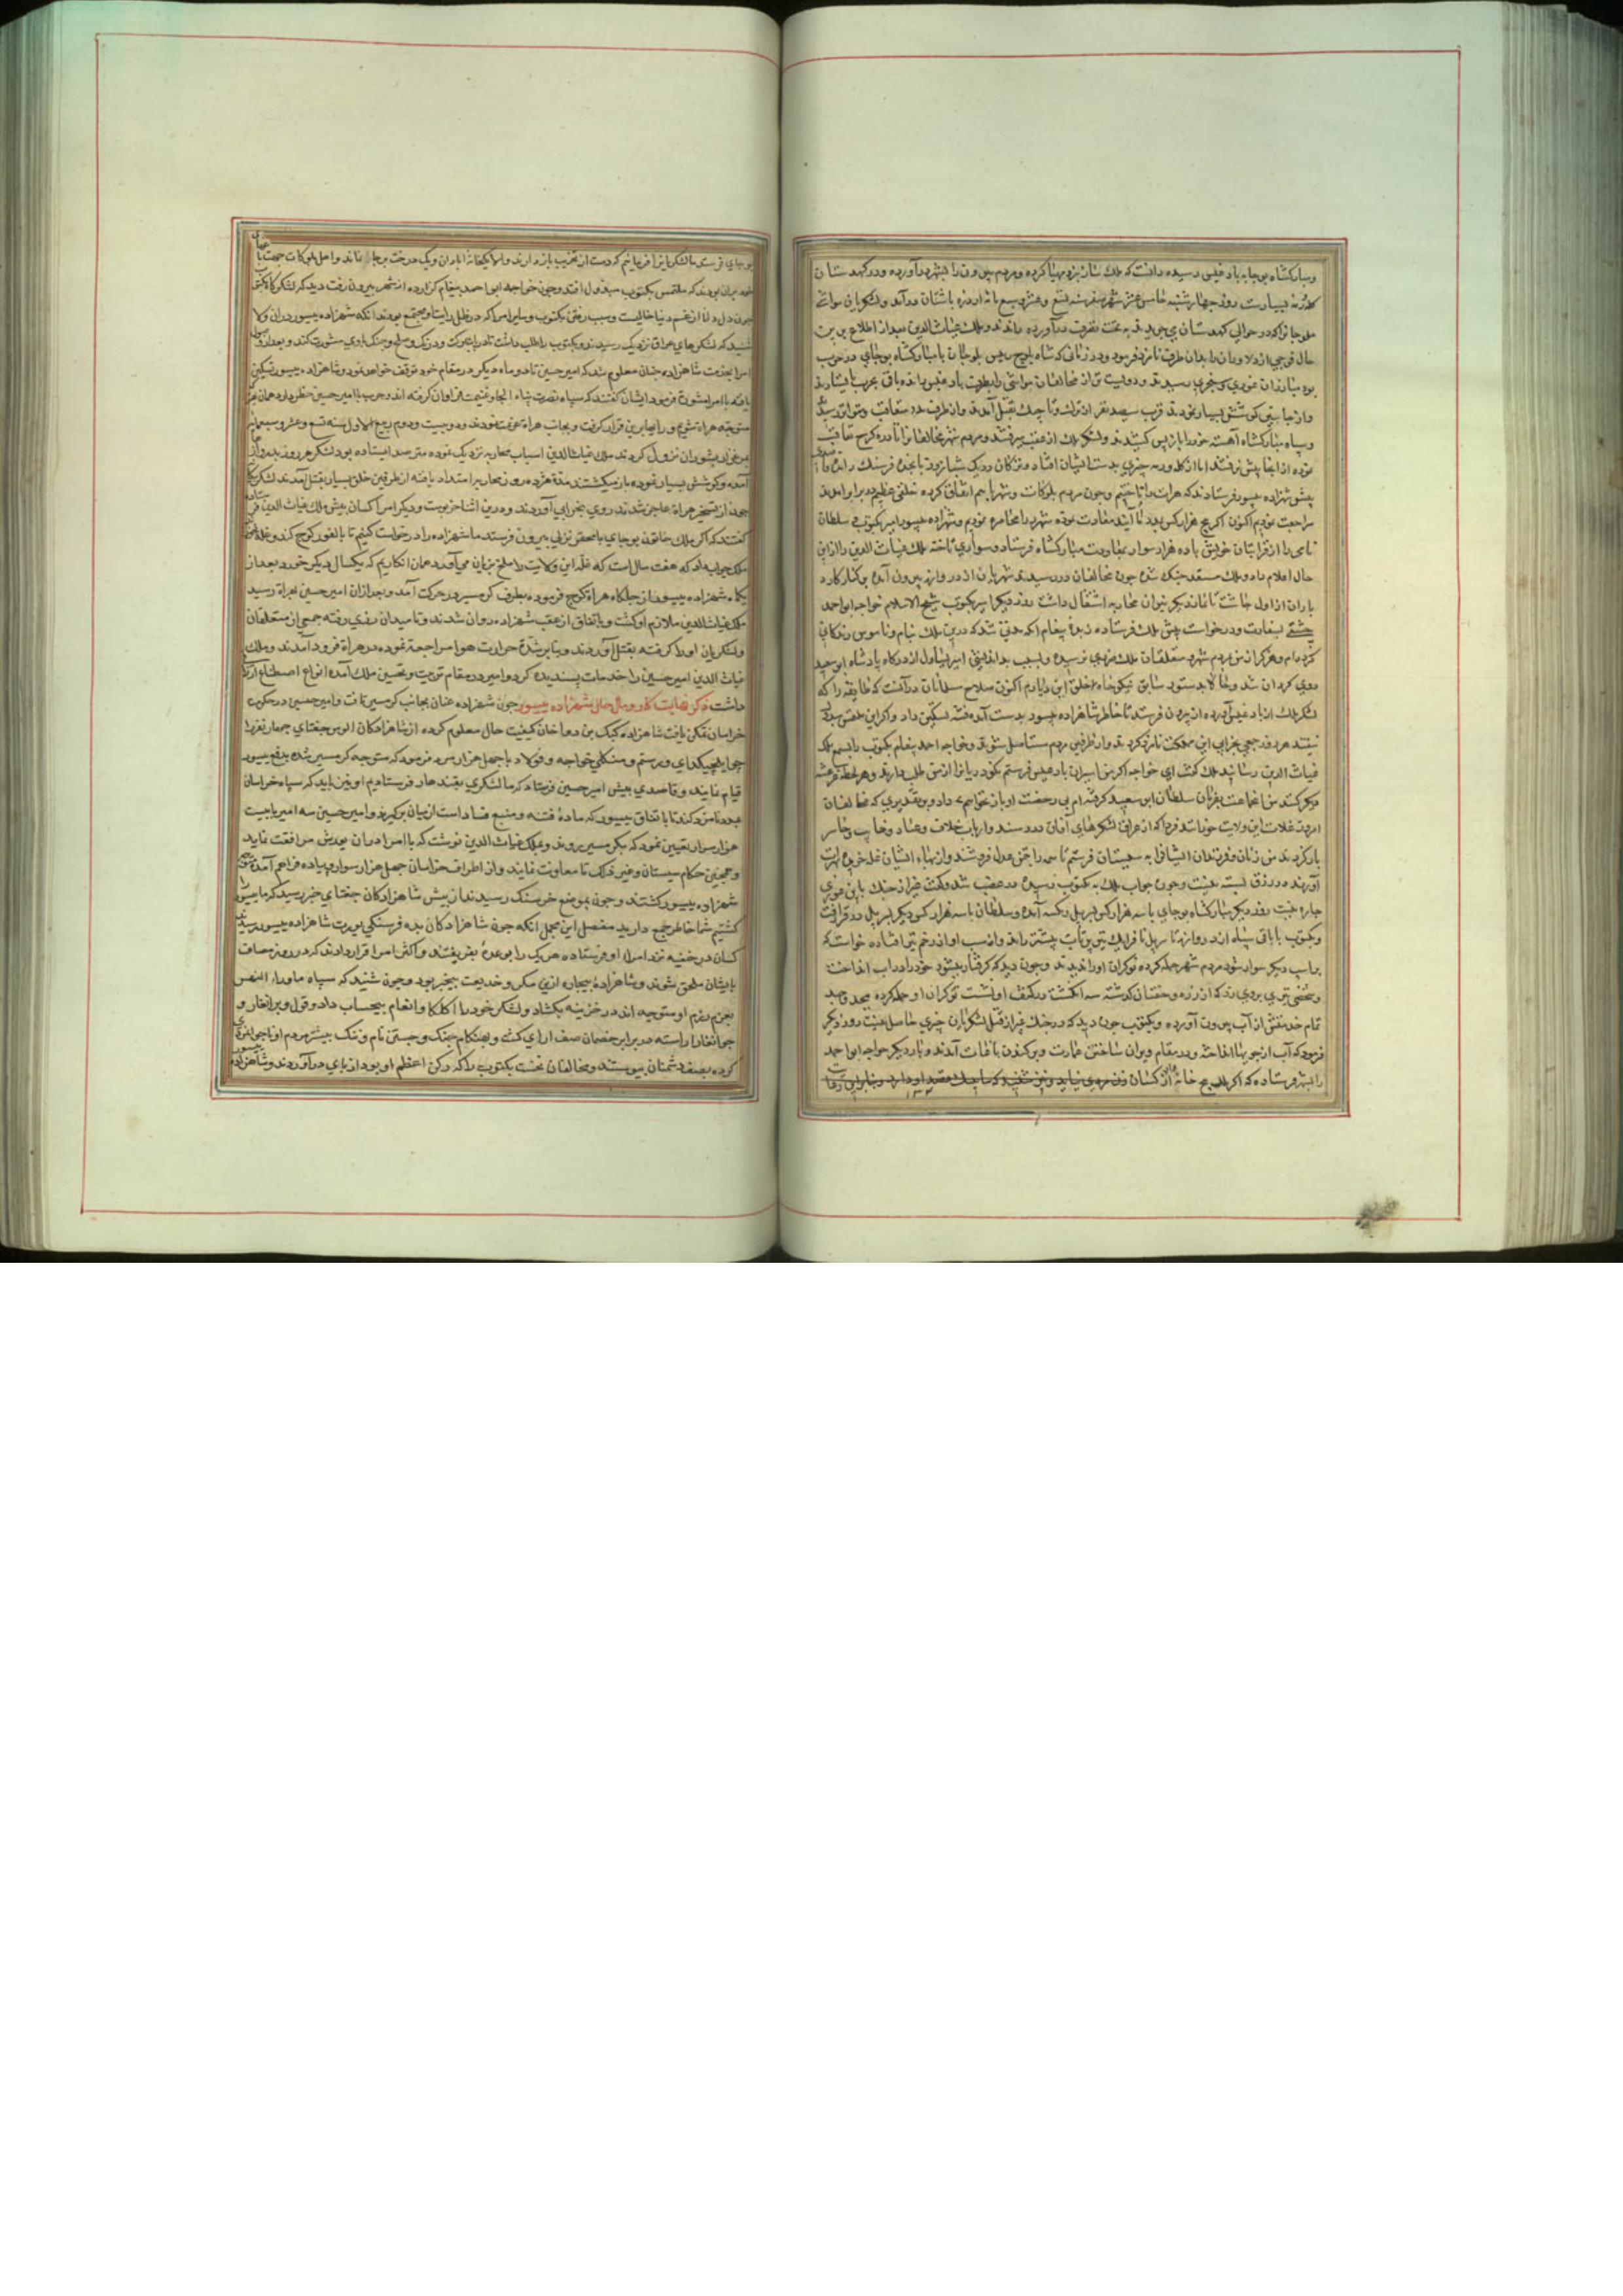 ومبارکشاه بوجابه بادغیس رسیده دانست که ملک شاربزه مهیا کرده ومردم بیرون را بشهر درآورده ودر کهدستان
روز چهارشنبه خامس عشر شهر صفر سنه تسع وعشر وسبعمائه از دره باشتان درآمد ولشکریان مواشی
در حوالی کهدستان می چریدند به تحت تصرف درآورده راندند وملک غیاث الدین بعد از اطلاع برین
حال فوجی از دلاوران را بدان طرف نامزد فرمود ودر زمانی که شاه بلوچ رئیس بلوجان با مبارکشاه بوجای در حرب
بود مبارزان غوری وسنجری رسیدند ودویست تن از مخالفان مواشی را بطرف بادغیس رانده باقی بحرب
واز جانبین کوشش بسیار نمودند قرب سیصد نفر از ترک وتاجیک بقتل آمدند واز طرفین مدد متعاقب ومتواتر رسید
وسپاه مبارکشاه آهسته خود را باز پس کشیدند ولشکر ملک از عقب میرفتند ومردم شهر مخالفان را تا دره کرخ تعاقب
نموده از آنجا پیش نرفتند اما از کله ورمه چیزی بدست ایشان افتاد وترکان در یک شبانروز پانجده فرسنک رانده
پیش شهزاده یسور فرستادند که هرات را تاختیم وچون مردم بلوکات وشهر باهم اتفاق کرده خلقی عظیم در برابر آمدند
مراجعت نمودیم اکنون اگر پنج هزار کس بمدد ما آیند معاودت نموده شهر را محاصره نمودیم وشهزاده یسور امیر بکتوب وسلطان
نامی را از قرابتان خویش با ده هزار سوار بمعاونت مبارکشاه فرستاد وسواری تاخته ملک غیاث الدین را از این
حال اعلام داد وملک مستعد جنک شده چون مخالفان در رسیدند شهریان از دروازه بیرون آمده بر کنار کارد
باران از اول چاشت تا نماز دیکر نیران محاربه اشتغال داشت روز دیکر امیر بکتوب شیخ الاسلام خواجه ابو احمد
چشتی بسفارت ودرخواست پیش ملک فرستاده زبده پیغام آنکه مدتی شد که درین ملک بنام وناموس زندکانی
کرده‌ام وهرکز از من بمردم شهر ومتعلقان ملک ضرری نرسیده وبسبب بد اندیشی امیر یساول از درکاه پادشاه ابو سعید
روی کردان شد وحالا بدستور سابق نیکو خواه خلق این دیارم اکنون صلاح مسلمانان در آنست که طایفه را که
لشکر ملک از بادغیس آورده‌اند بیرون فرستد تا خاطر شاهزاده یسور بدست آمده فتنه تسکین داد واکر این ملتمس مبذول
نیفتد هر دو جمعی بخرابی این مملکت نامزد کردند واز طرفین مردم مستأصل شوند وخواجه احمد پیغام بکتوب را بسمع ملک
غیاث الدین رسانید ملک کفت ای خواجه اکر من اسیران بادغیس فرستم نکودریان را از من طلب دارند وهر لحظه عرضه
دیکر کنند من انجماعت بفرمان سلطان ابو سعید کرفته‌ام بی رخصت او باز نخواهم داد وبر تقدیری که مخالفان
امروز غلات این ولایت خورانند فردا که از عراق لشکرهای آفاق در رسند وارباب خلاف وعناد وخائب وخاسر
بازکردند من زنان وفرزندان ایشانرا به سجستان فرستم تا سیه را بثمن عدل فروشند واز بهاء ایشان غله خریده بهرات
آورند در رزق بسته نیست وچون جواب ملک به بکتوب رسیده در غضب شد وکفت غیر از جنک با این غوری
چاره نیست روز دیکر مبارکشاه بوجای با سه هزار کس بر پل درکسه آمده وسلطان با سه هزار کس دیکر بر پل درقرافت
وبکتوب با باقی سپاه از دروازه تا سر پل یک تیر پرتاب پیشتر راند واسب او از زخم تیر افتاده خواست که
بر اسب دیکر سوار شود مردم شهر حمله کرده نوکران او را ندیدند وچون دید که کرفتار میشود خود را در آب انداخت
وشخصی تیری بروی زد که از زره وخفتان کذشته سه انکشت در کتف او نشست نوکران او حمله کرده بجد وجهد
تمام خدمتش از آب بیرون آورده وبکتوب چون دید که در جنک غیر از قتل لشکریان چیزی حاصل نیست روز دیکر
فرمود که آب از جویها انداختند ودر مقام ویران ساختن عمارت وبر کندن باغات آمدند وبار دیکر خواجه ابو احمد
را بشهر فرستاده که اکر ملک پنج خانه از کسان
بوجای فرستد ما لشکریانرا فرمائیم که دست از تخریب باز دارند والا یکخانه آبادان ویک درخت بر جا نماند واهل بلوکات جمعت با
بودند که ملتمس بکتوب مبذول افتد وچون خواجه ابو احمد پیغام کزارده از شهر بیرون رفت دید که لشکر
چون دل دانا از غم دنیا خالیست وسبب رفتن بکتوب وسایر امرا که در ظل رایت او مجتمع بودند آنکه شهزاده یسور در آن ولا
شنید که لشکرهای عراق نزدیک رسیدند وبکتوب را طلب داشت تا در باب حرکت ودرنک وصلح وجنک با وی مشورت کند وبعد از وصول
امرا بخدمت شاهزاده چنان معلوم شد که امیر حسین تا دو ماه دیکر در مقام خود توقف خواهد نمود وشاهزاده یسور تسکین
یافته با امرا مشورت فرمود ایشان کفتند که سپاه نصرت پناه الجا وغنیمت فراوان کرفته‌اند وحرب با امیر حسین خطر دارد همان بهتر
متوجه هراة شویم ورایها برین قرار کرفت وبجانب هراة عزیمت نمودند ودر بیست ودوم ربیع الاول سنه تسع وعشر وسبعمائه
بمرغزار بشوران نزول کردند ملک غیاث الدین اسباب محاربه نزدیک نموده مترصد ایستاده بود لشکر هر روز بدروازه
آمده وکوشش بسیار نموده باز میکشتند مدة هژده روز محاربه امتداد یافته از طرفین خلق بسیار بقتل آمدند لشکر
چون از تسخیر هراة عاجز شدند روی بخرابی آوردند ودرین اثنا خربوت ودیکر امرا کسان پیش ملک غیاث الدین
کفتند که اکر ملک خاتون بوجای با صحقر نزلی بیرون فرستد ما شهزاده را درخواست کنیم تا بالفور کوچ کند
ملک جواب داد که هفت سال است که غله این ولایت را ملخ بزیان می‌آورد همان انکاریم که یکسال دیکر خورد بعد از
یکماه شهزاده یسور از جلکاه هراة کوچ فرموده بطرف کرمسیر در حرکت آمد وبعد ازان امیر حسین بهراة رسید
ملک غیاث الدین ملازم او کشت وباتفاق از عقب شهزاده روان شدند وتا میدان رفری رفته جمعی از متعلقان
ولشکریان او را کرفته بقتل آوردند وبنابر شدة حرارت هوا مراجعة نموده در هراة فرود آمدند وملک
غیاث الدین امیر حسین را خدمات پسندیده کرد وامیر در مقام تربیت وتحسین ملک آمده انواع اصطناع ارزانی
داشت ذکر نهایت کار ومآل حال شهزاده یسور چون شهزاده عنان بجانب کرمسیر تافت وامیر حسین در حکومت
خراسان تمکن یافت شاهزاده کبک بن دوا خان کیفیت حال معلوم کرده از شاهزادکان الوس جغتای چهار نفر را
چو ایلچیکدای ورستم ومنکلی خواجه وفولاد با چهل هزار مرد فرمود که متوجه کرمسیر شده بدفع یسور
قیام نمایند وقاصدی پیش امیر حسین فرستاد که ما لشکری بقندهار فرستادیم او نیز باید که سپاه خراسان
بمدد نامزد کند تا باتفاق یسور که ماده فتنه ومنبع فساد است از میان برکیرند وامیر حسین سه امیر با بیست
هزار سوار تعیین نمود که بکرمسیر روند وبملک غیاث الدین نوشت که با امرا در آن یورش مرافقت نماید
وهمچنین حکام سیستان وغیر ذلک تا معاونت نمایند واز اطراف خراسان چهل هزار سوار وپیاده فراهم آمده
شهزاده یسور کشتند وچون بموضع خرسنک رسیدند از پیش شاهزادکان جغتای خبر رسید که ما یسور را
کشتیم شما خاطر جمع دارید مفصل این مجمل آنکه چون شاهزادکان بده فرسنکی یورت شاهزاده یسور رسیدند
کسان در خفیه نزد امراء او فرستاده هر یک را بوعده بفریفتند واکثر امرا قرار دادند که در روز مصاف
بایشان ملحق شوند وشاهزاده بیچاره ازین مکر وخدیعت بیخبر بود وچون شنید که سپاه ماوراء النهر
بعزم رزم او متوجه‌اند در خزینه بکشاد ولشکر خود را اکلکا وانعام بیحساب داد وقول وبرانغار و
جوانغار آراسته در برابر خصمان صف آرای کشت وبهنکام جنک وجستن نام وننک بیشتر مردم او
کرده بصف دشمنان پیوستند ومخالفان نخست بکتوب را که رکن اعظم او بود از پای درآوردند وشاهزاده